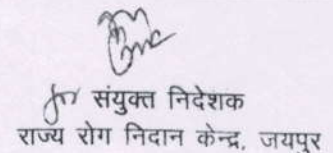 for संयुक्त निदेशक
राज्य रोग निदान केन्द्र, जयपुर